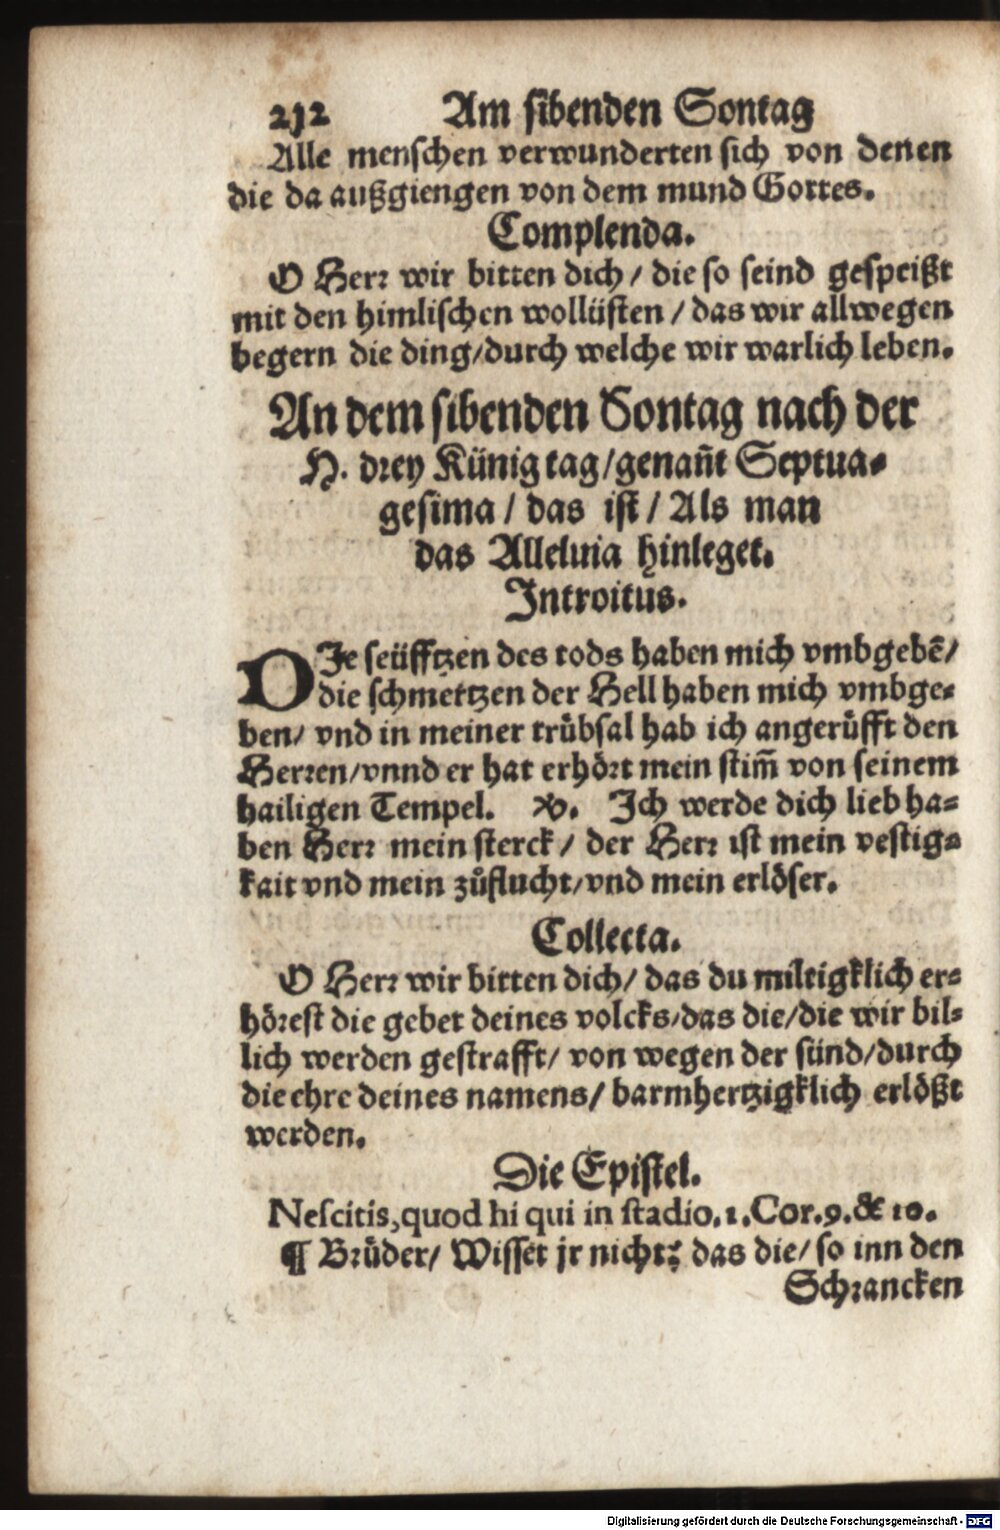 212 Am sibenden Sontag
Alle menschen verwunderten sich von denen
die da außgiengen von dem mund Gottes.
Complenda.
O Herr wir bitten dich / die so seind gespeißt
mit den himlischen wollüsten / das wir allwegen
begern die ding/durch welche wir warlich leben.
An dem sibenden Sontag nach der
H. drey Künig tag/genañt Septua-
gesima / das ist / Als man
das Alleluia hinleget.
Introitus.
DIe seüfftzen des tods haben mich vmbgebē/
die schmertzen der Hell haben mich vmbge-
ben/ vnd in meiner trübsal hab ich angerüfft den
Herren/vnnd er hat erhört mein stim̃ von seinem
hailigen Tempel. ℣. Ich werde dich lieb ha-
ben Herr mein sterck / der Herr ist mein vestig-
kait vnd mein zůflucht/vnd mein erlöser.
Collecta.
O Herr wir bitten dich/ das du miltigklich er-
hörest die gebet deines volcks/das die/die wir bil-
lich werden gestrafft/ von wegen der sünd/durch
die ehre deines namens/ barmhertzigklich erlößt
werden.
Die Epistel.
Nescitis,quod hi qui in stadio.1.Cor.9.& 10.
¶ Brüder/ Wisset jr nicht? das die/ so inn den
Schrancken
Digitalisierung gefördert durch die Deutsche Forschungsgemeinschaft - DFG